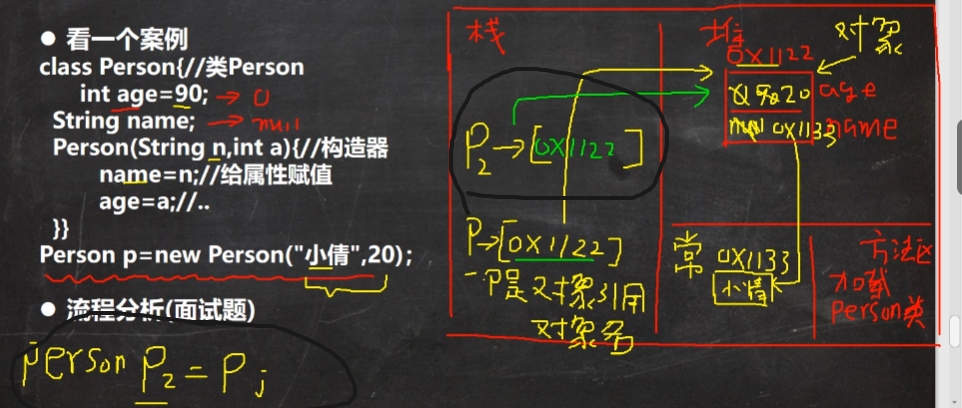 ● 看一个案例
class Person{//类Person
int age=90; → 0
String name; → null
Person(String n,int a){//构造器
name=n;//给属性赋值
age=a;//..
}}
Person p=new Person("小倩",20);
● 流程分析(面试题)
Person P2 = P;
栈
P2→[0X1122]
P→[0X1122]
P是对象引用
对象名
堆
对象
0X1122
20 age
null 0X1133 name
常 0X1133
小倩
方法区
加载
Person类